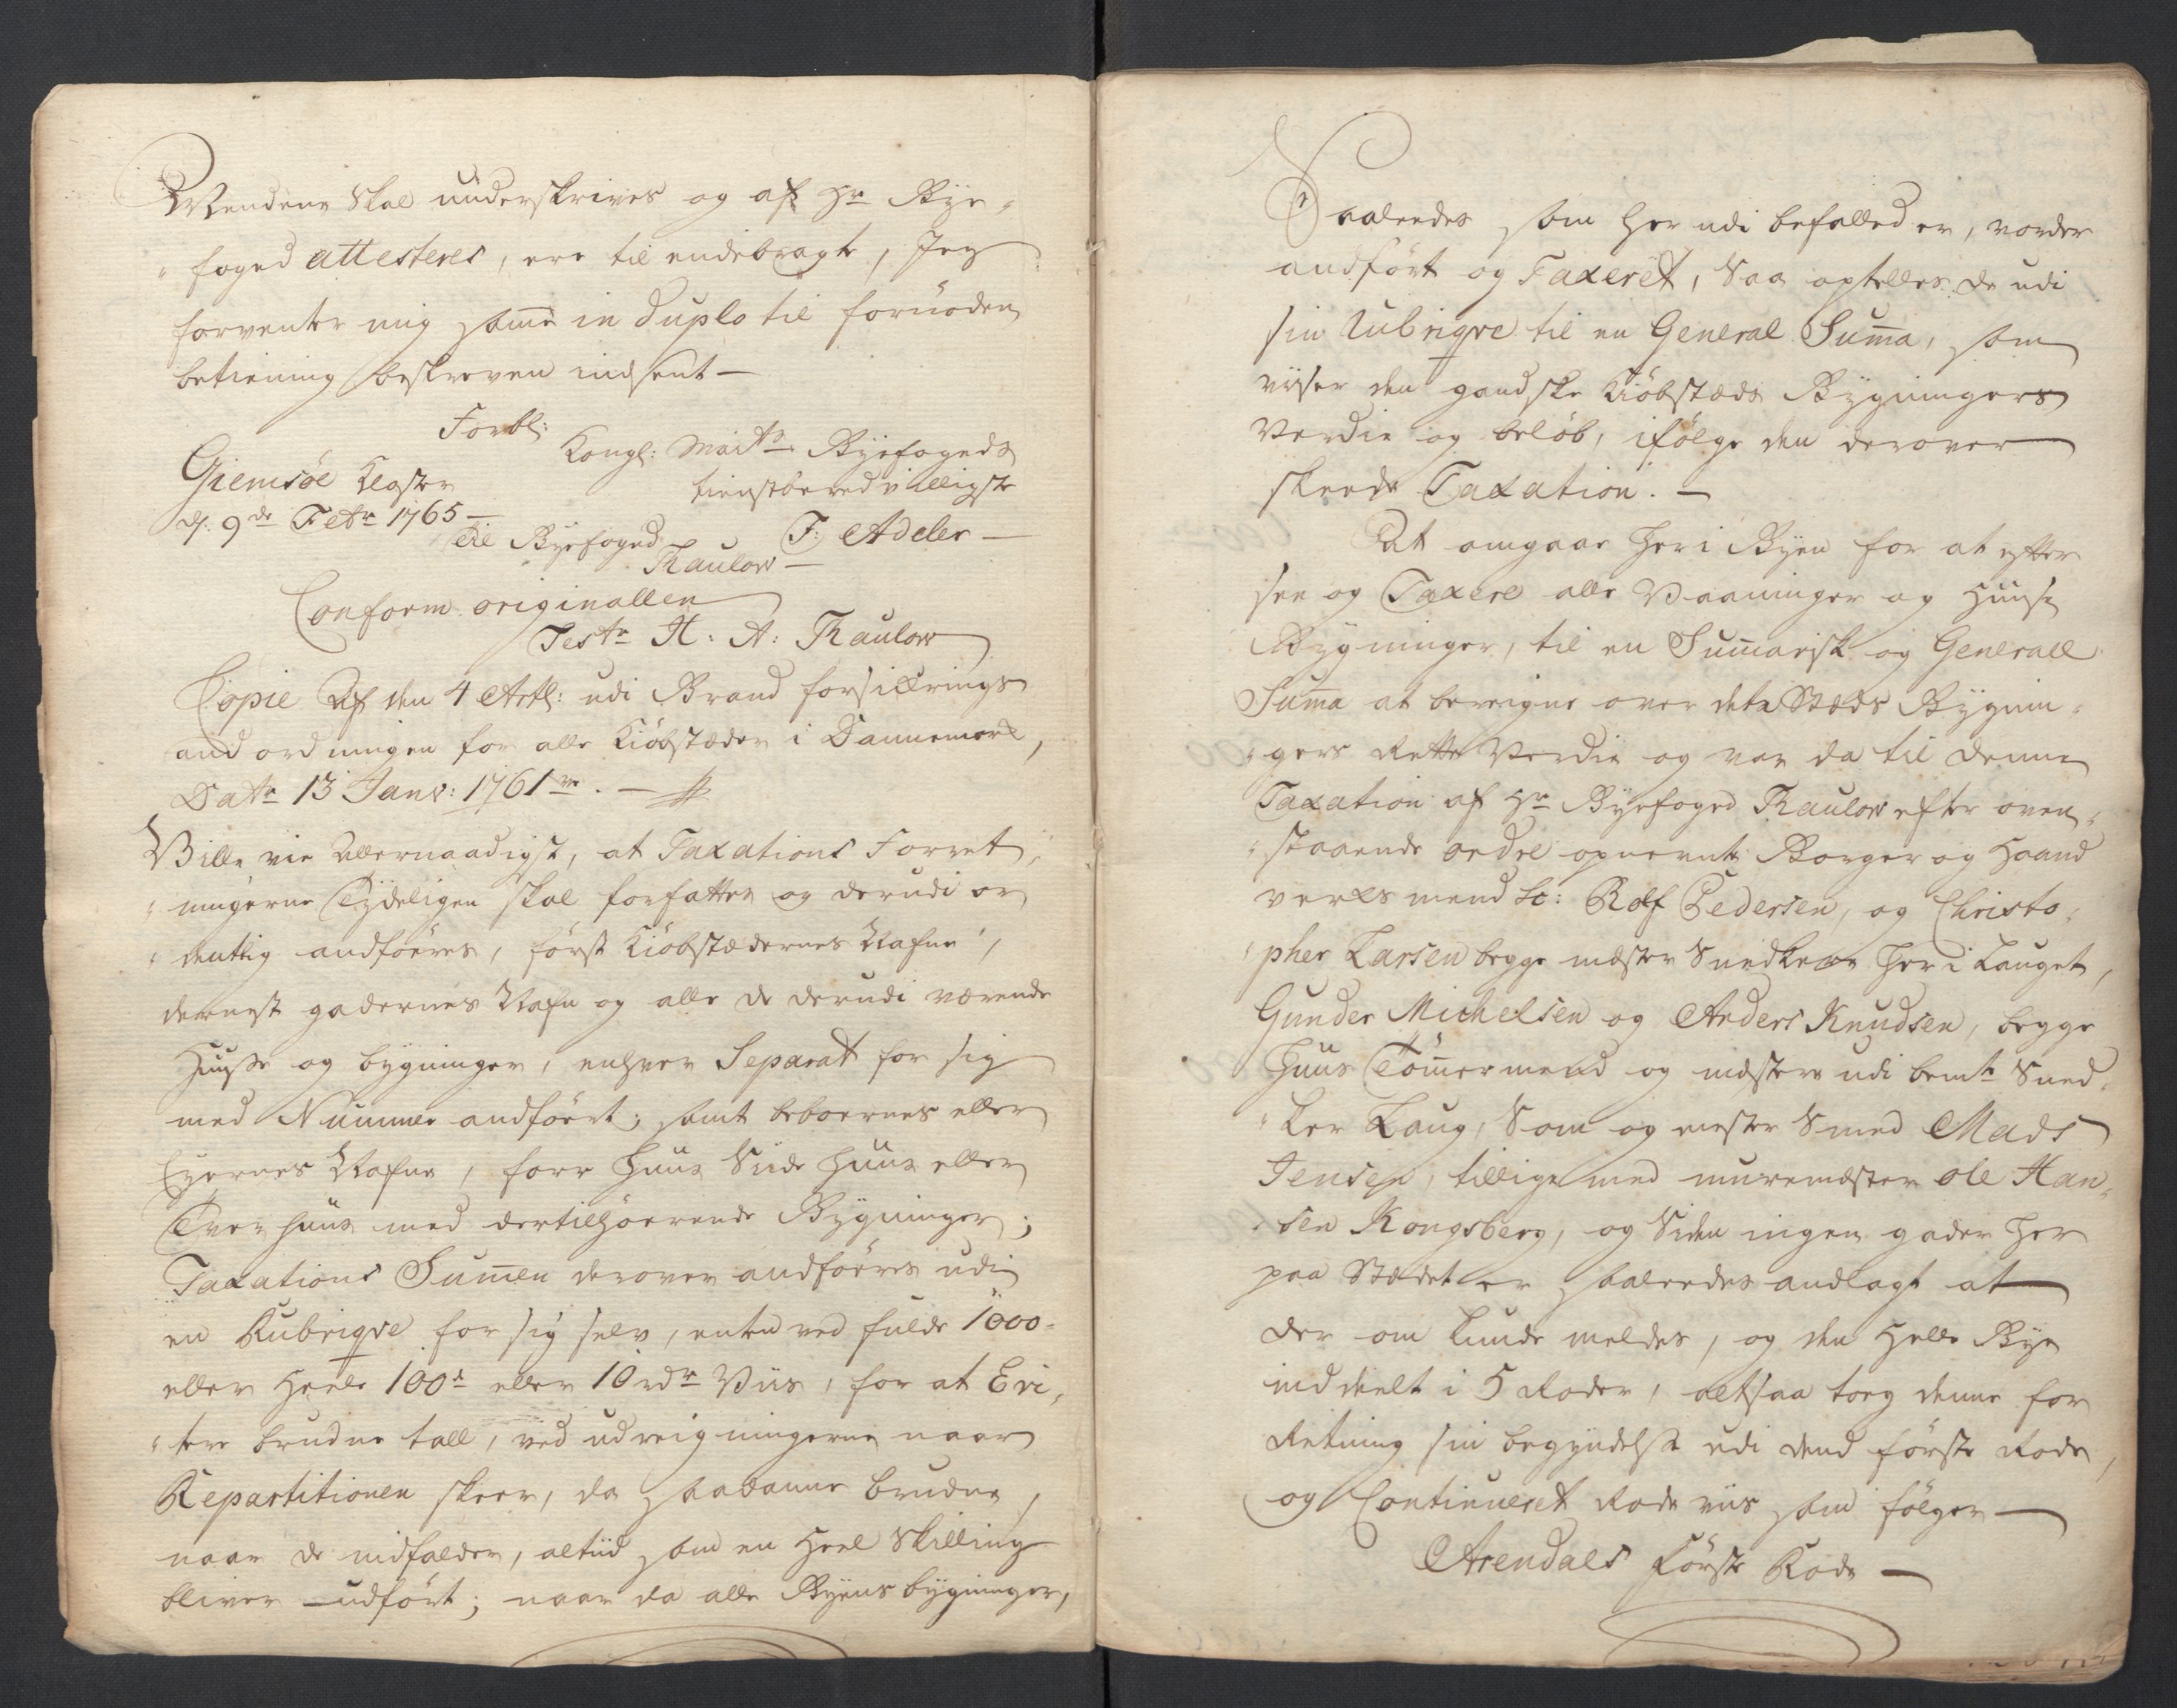 Mendene skal underskrives og af Hr Bye-
foged attesteres, ere til endebragte, Jeg
forventer mig samme in Duplo til fornöden
betiening beskreven indsent —
Forbl:
Kongl: Maits Byefogeds
tienstberedvilligste
Giemsöe Kloster
d: 9de Febr 1765 —
F: Adeler —
Til Byefoged
Thaulow —
Conform originallen
Test H: A: Thaulow
Copie Af den 4 Artl: udi Brand forsikrings
andordningen for alle Kiöbstæder i Dannemark,
Dat 13 Janv: 1761 . —
Ville vie Allernaadigst, at Taxations Forret-
ningerne Tydeligen skal forfattes og derudi or
dentlig andföeres, först Kiöbstædernes Nafne,
dernest gadernes Nafn og alle de derudi værende
Huuse og bygninger, enhver Separat for sig
med Nummer andföert; samt beboernes eller
Eyernes Nafne, Forr Huus Side Huus eller
Tver huus med dertilhöerende Bygninger;
Taxations Summen derover andföeres udi
en Rubriqve for sig selv, enten ved fulde 1000-
eller Heele 100de eller 10 rdr Viis, for at Evi-
tere brudne tall, ved udreigningerne naar
Repartitionen skeer, da saadanne brudne,
naar de indfalder, altiid som en Heel Skilling
bliver udfört; naar da alle Byens bygninger,
Saaledes som her udi befalled er, vorder
andfört og Taxeret, Saa optelles de udi
sin Rubriqve til en General Summa, som
viiser den gandske Kiöbstæds Bygningers
Verdie og belöb, ifölge den derover
skeede Taxation. —
At omgaae her i Byen for at efter
see og Taxere alle Vaaninger og Huuse
Bygninger, til en Summarisk og Generall
Summa at bereigne over dette Stæds Bygnin-
gers Rette Verdie og var da til denne
Taxation af Hr Byefoged Thaulow efter oven-
staaende ordre opnevnte Borger og Haand
verks mend sc: Rolf Pedersen, og Christo-
pher Larsen begge mester Snedkere her i Lauget,
Gunder Michelsen og Anders Knudsen, begge
Huus Tömmermend og mestere udi bemte Sned-
ker Laug, Som og mester Smed Mads
Jensen, tillige med muremester Ole Han-
sen Kongsberg, og Siden ingen gader her
paa Stædet er saaledes andlagt at
der om kunde meldes, og den Helle Bye
inddeelt i 5 Roder, altsaa tog denne for
Retning sin begyndelse udi dend förste Rode,
og Continueret Rode viis som fölger —
Arendals Förste Rode —